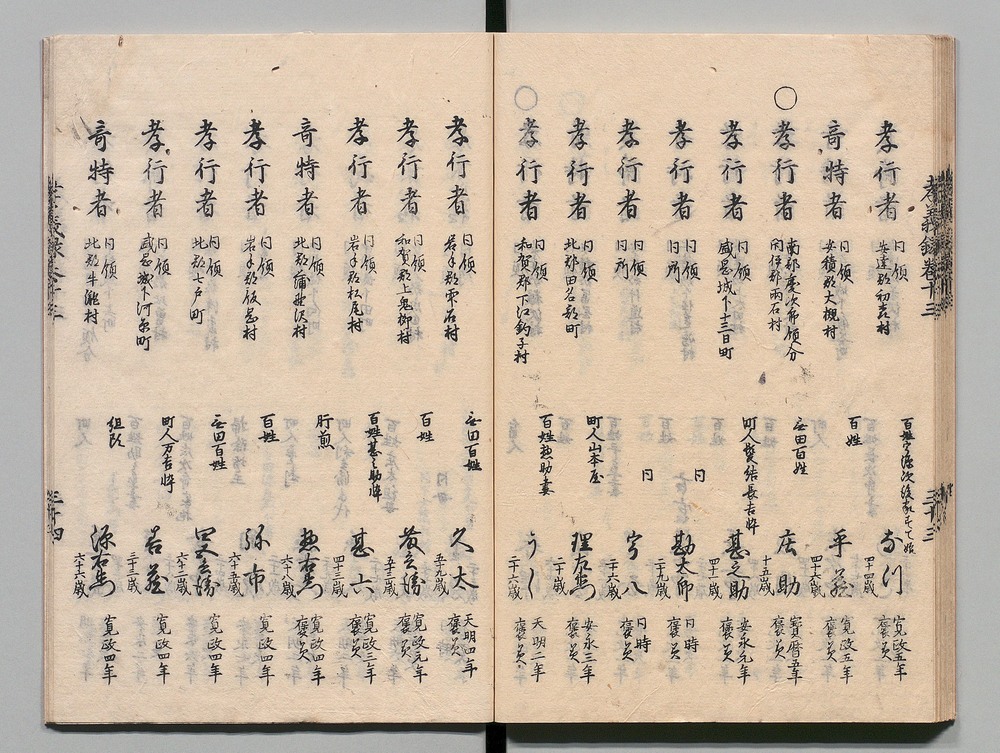 孝義録巻十三
孝行者 同領 安達郡初森村 百姓 なつ 四十四歳 寛政五年 褒美
奇特者 同領 安積郡大槻村 百姓 平蔵 四十六歳 寛政五年 褒美
○孝行者 南部慶次郎領分 閉伊郡両石村 無田百姓 庄助 十五歳 宝暦五年 褒美
孝行者 同領 盛岡城下十三日町 町人髪結長吉忰 甚之助 四十一歳 安永元年 褒美
孝行者 同領 同所 同 勘太郎 二十九歳 同時 褒美
孝行者 同領 同所 同 宇八 二十六歳 同時 褒美
孝行者 同領 北郡田名部町 町人山本屋 理左衛門 二十歳 安永三年 褒美
○孝行者 同領 和賀郡下江釣子村 百姓惣助妻 うし 二十六歳 天明二年 褒美
三十三
孝行者 同領 岩手郡雫石村 無田百姓 久太 五十九歳 天明四年 褒美
孝行者 同領 和賀郡上鬼柳村 百姓 茂兵衛 五十二歳 寛政元年 褒美
孝行者 同領 岩手郡松尾村 百姓甚之助忰 甚六 四十二歳 寛政三年 褒美
奇特者 同領 北郡蒲野沢村 肝煎 惣右衛門 六十八歳 寛政四年 褒美
孝行者 同領 岩手郡飯岡村 百姓 弥市 六十五歳 寛政四年
孝行者 同領 北郡七戸町 無田百姓 兵衛 六十二歳 寛政四年
孝行者 同領 盛岡城下河原町 町人万吉忰 岩蔵 三十二歳 寛政四年
奇特者 同領 北郡牛滝村 組頭 源右衛門 六十六歳 寛政四年
孝義録巻十三
三十四